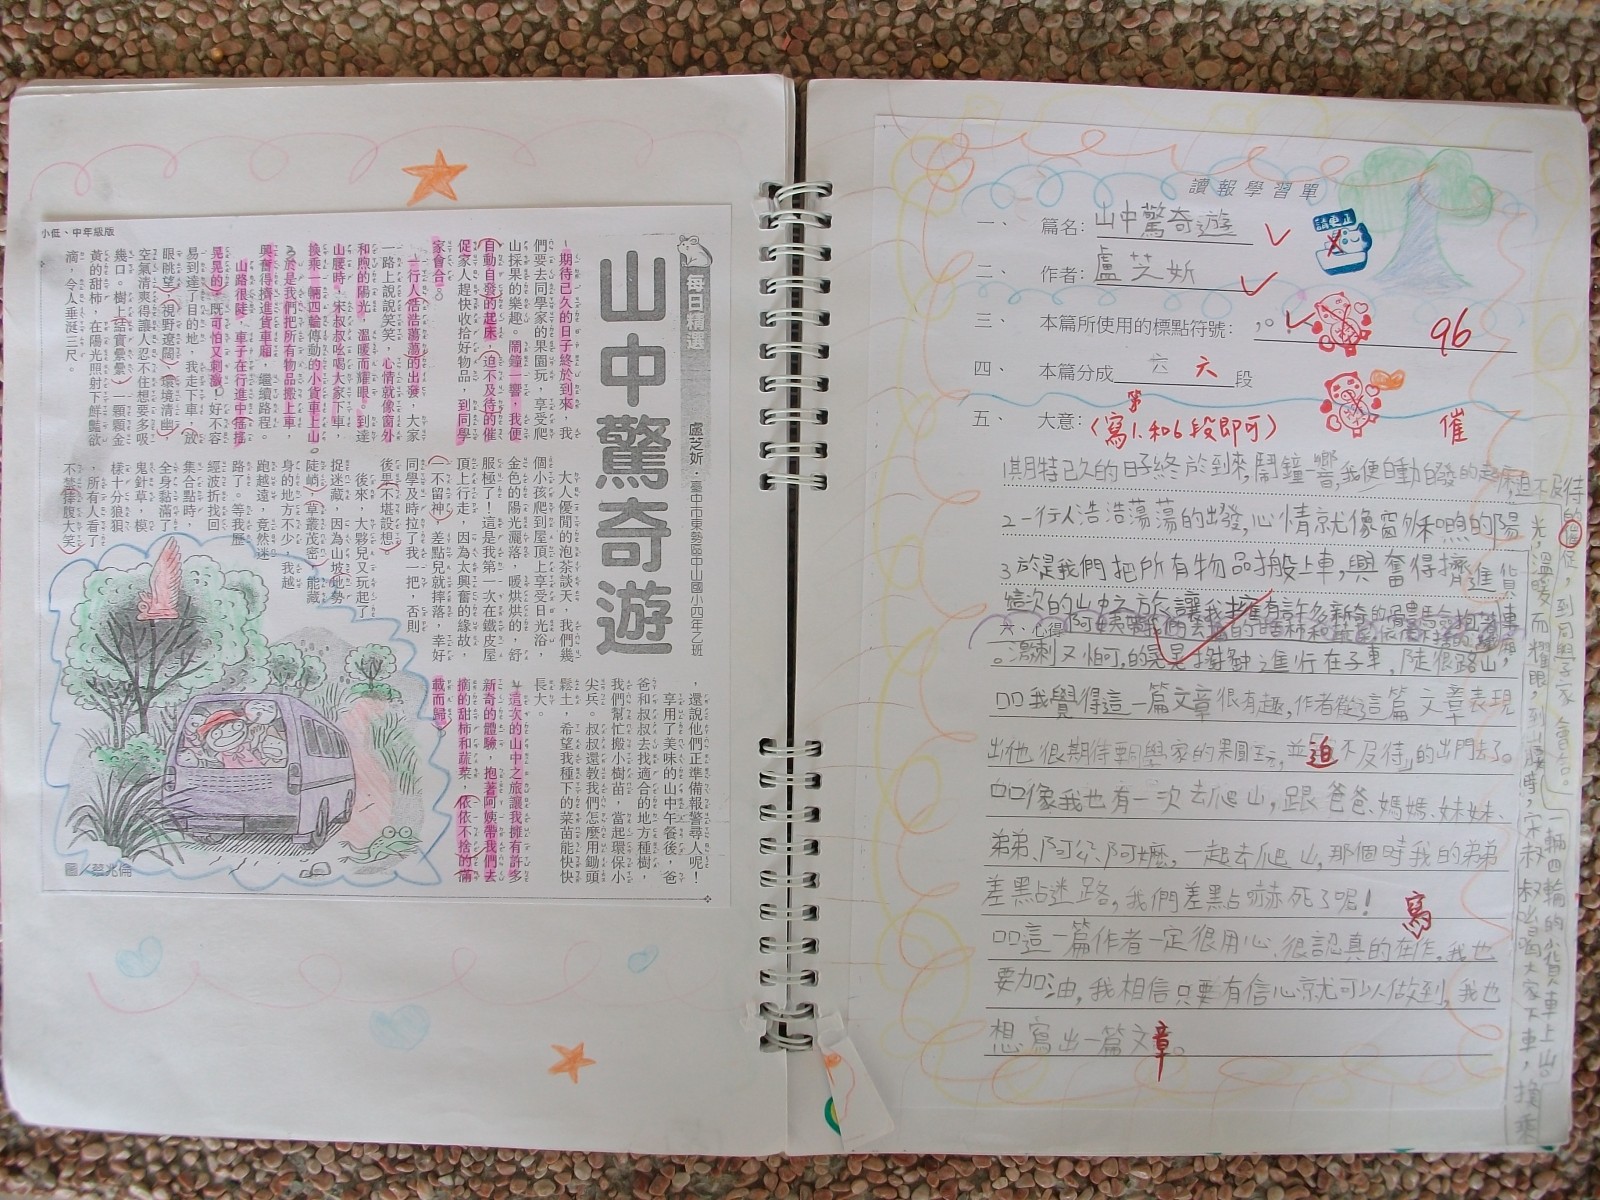 小低、中年級版
每日精選
山中驚奇遊
盧芝妡．臺中市東勢區中山國小四年乙班
期待已久的日子終於到來，我
們要去同學家的果園玩，享受爬
山採果的樂趣。鬧鐘一響，我便
自動自發的起床，迫不及待的催
促家人趕快收拾好物品，到同學
家會合。
一行人浩浩蕩蕩的出發，大家
一路上說說笑笑，心情就像窗外
和煦的陽光，溫暖而耀眼。到達
山腰時，宋叔叔吆喝大家下車，
換乘一輛四輪傳動的小貨車上山
。於是我們把所有物品搬上車，
興奮得擠進貨車廂，繼續路程。
山路很陡，車子在行進中搖搖
晃晃的，既可怕又刺激！好不容
易到達了目的地，我走下車，放
眼眺望，視野遼闊，環境清幽，
空氣清爽得讓人忍不住想要多吸
幾口。樹上結實纍纍，一顆顆金
黃的甜柿，在陽光照射下鮮豔欲
滴，令人垂涎三尺。
大人優閒的泡茶談天，我們幾
個小孩爬到屋頂上享受日光浴，
金色的陽光灑落，暖烘烘的，舒
服極了！這是我第一次在鐵皮屋
頂上行走，因為太興奮的緣故，
一不留神，差點兒就摔落，幸好
同學及時拉了我一把，否則
後果不堪設想。
後來，大夥兒又玩起了
捉迷藏，因為山坡地勢
陡峭，草叢茂密，能藏
身的地方不少，我越
跑越遠，竟然迷
路了。等我歷
經波折找回
集合點時，
全身黏滿了
鬼針草，模
樣十分狼狽
，所有人看了
不禁捧腹大笑
，還說他們正準備報警尋人呢！
享用了美味的山中午餐後，爸
爸和叔叔去找適合的地方種樹，
我們幫忙搬小樹苗，當起環保小
尖兵。叔叔還教我們怎麼用鋤頭
鬆土，希望我種下的菜苗能快快
長大。
這次的山中之旅讓我擁有許多
新奇的體驗，抱著阿姨帶我們去
摘的甜柿和蔬菜，依依不捨的滿
載而歸。
圖／蔡兆倫
讀報學習單
一、 篇名：山中驚奇遊
請更正
二、 作者：盧芝妡
三、 本篇所使用的標點符號：，。
96
四、 本篇分成 六 六 段
五、 大意：（寫第1.和6段即可）
催
1期待已久的日子終於到來，鬧鐘一響，我便自動自發的起床，迫不及待的
催促，到同學家會合。
2一行人浩浩蕩蕩的出發，心情就像窗外和煦的陽
光，溫暖而耀眼，到山腰時，宋叔叔吆喝大家下車，換乘
一輛四輪的小貨車上山。
3於是我們把所有物品搬上車，興奮得擠進貨車
這次的山中之旅讓我擁有許多新奇的
六、心得
□□我覺得這一篇文章很有趣，作者從這篇文章表現
出他很期待同學家的果園玩，並「迫不及待」的出門去了。
□□像我也有一次去爬山，跟爸爸、媽媽、妹妹、
弟弟、阿公、阿嬤，一起去爬山，那個時我的弟弟
差點迷路，我們差點嚇死了呢！
寫
□□這一篇作者一定很用心、很認真的在作，我也
要加油，我相信只要有信心就可以做到，我也
想寫出一篇文章。